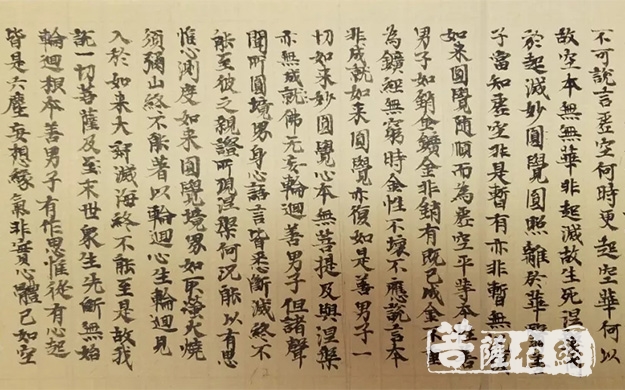 不可說言虛空何時更起空華何以
故空本無無華非起滅故生死涅槃
於起滅妙圓覺圓照離於華翳
子當知虛空非是暫有亦非暫無
如來圓覺隨順而為虛空平等本
男子如銷金鑛金非銷有既已成金不重
為鑛經無窮時金性不壞不應說言本
非成就如來圓覺亦復如是善男子一
切如來妙圓覺心本無菩提及與涅槃
亦無成就佛无妄輪迴善男子但諸聲
聞所圓境界身心語言皆悉斷滅終不
能至彼之親證所現涅槃何況能以有思
惟心測度如來圓覺境界如取螢火燒
須彌山終不能著以輪迴心生輪迴見
入於如來大寂滅海終不能至是故我
說一切菩薩及至末世眾生先斷無始
輪迴根本善男子有作思惟從有心起
皆是六塵妄想緣氣非實心體已如空
菩薩在線